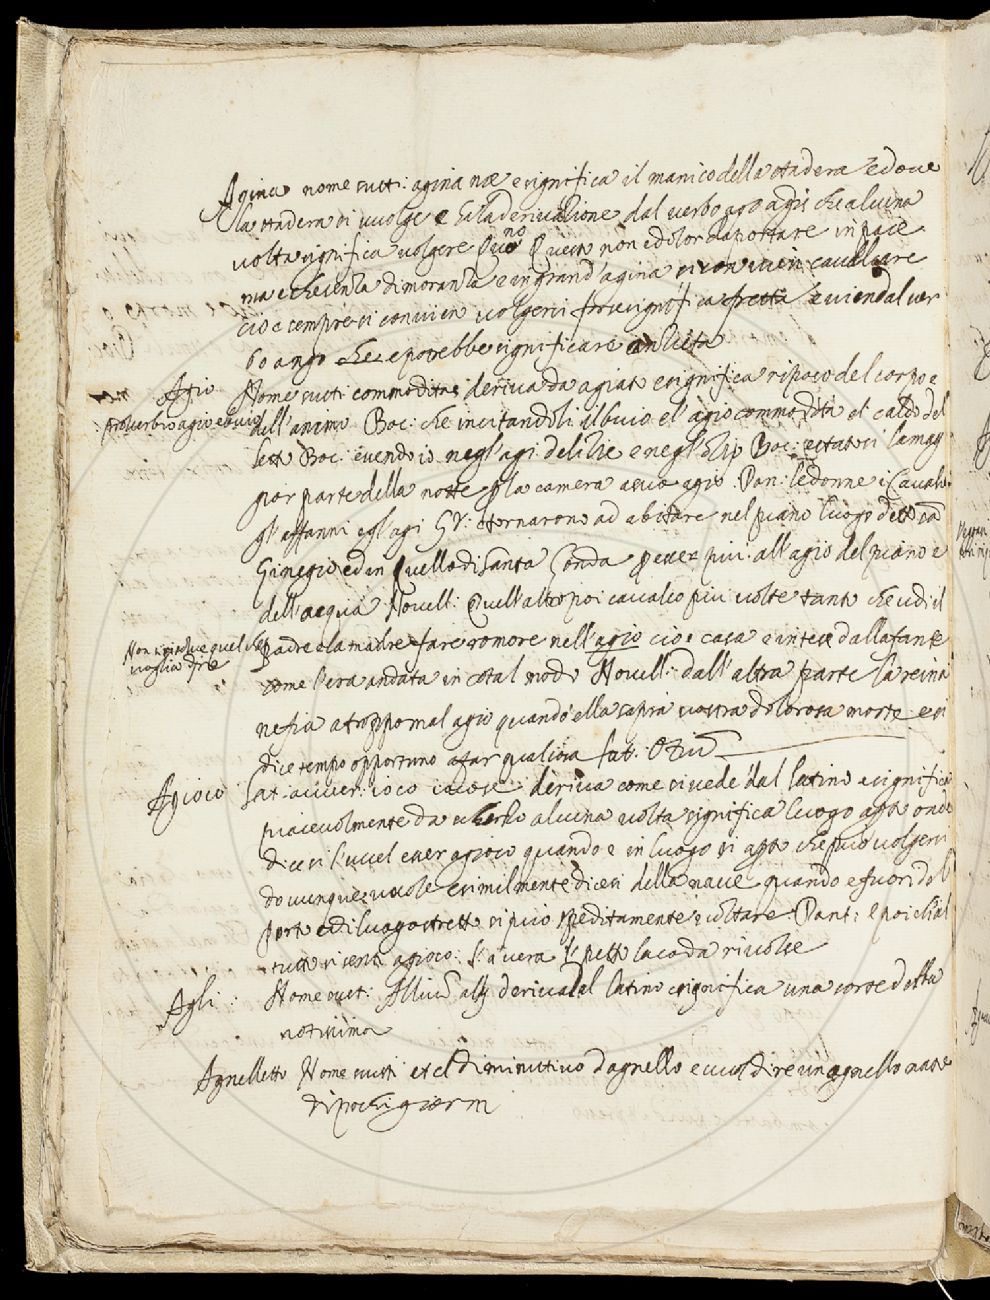 Agina nome sust: agina næ e significa il manico della stadera e dove
la stadera si vuolge e ha la derivazione dal verbo ago agis che alcuna
volta significa volgere Questo non e dolor da portare in pace
no
ma e che senza dimoranza e in grand' agina si convien cavalcare
cioe sempre si convien volgersi fretta e vien dal ver
bo ango che potrebbe significare anzieta
Agio Nome sust: commoditas deriva da agiato e significa riposo del corpo e
proverbio agio e buio dell'animo Boc: che incitandoli il buio e l'agio commodità et caldo del
letto Boc: avendo io negl'agi delizie e negl' Boc: e statosi la mag
gior parte della notte la camera a suo agio. Dan: le donne i Caval:
gl'affanni e gl'agi tornarono ad abitare nel piano luogo detto
ed in quello di Santa per piu all'agio del piano e
dell'acqua Novell: Quell'altro poi cavalco piu volte tanto che udi il
Non si puo quel che
voglia
Padre e la madre fare romore nell'agio cioe casa e intese dalla fante
come l'era andata in cotal modo Novell: dall'altra parte la reina
ne fia a troppo mal agio quando ella sapra vostra dolorosa morte e si
dice tempo opportuno a far qualcosa
Agioco avver: ioco deriva come si vede dal latino e significa
piacevolmente da scherzo alcuna volta significa luogo apto onde
dicesi l'uccel esser agioco quando e in luogo si apto che puo volgersi
dovunque vuole e similmente dicesi della nave quando e fuori del
porto e di luogo stretto si puo speditamente voltare Dant: E poi ch'al
tutto si senti a gioco: l'a v'era l petto la coda rivolse
Agli: Nome sust: Allium allij deriva dal latino e significa una sorte d'
notissima
Agnelletto Nome susti et e diminutivo d'agnello e vuol dire un agnello nato
di pochi giorni